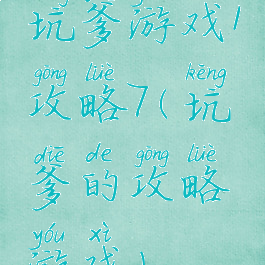 坑爹游戏1
gōng lüè kēng
攻略7(坑
diē de gōng lüè
爹的攻略
yóu xì
游戏